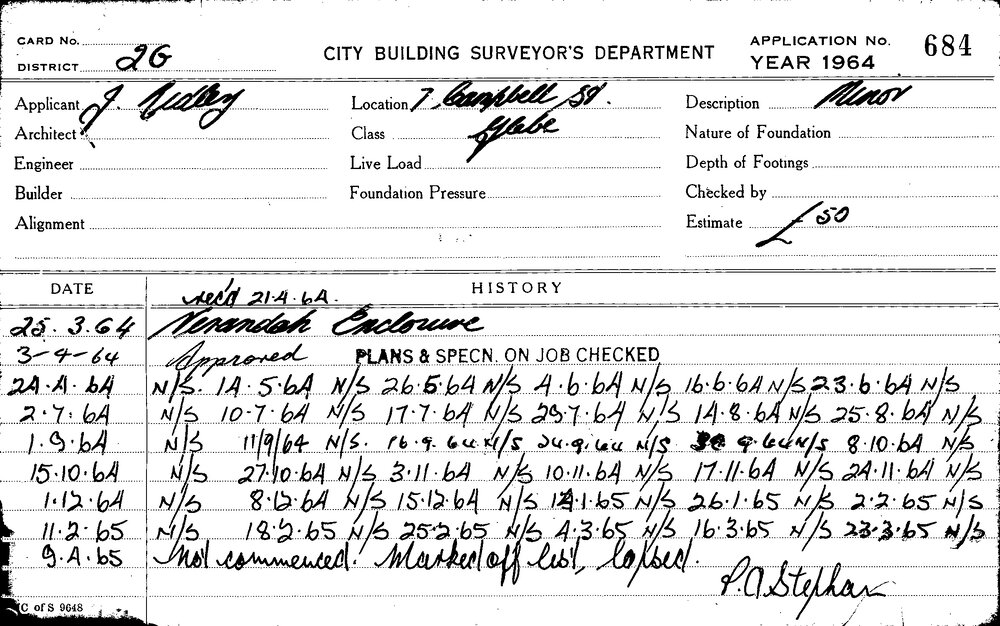 CARD No.
DISTRICT 2G
CITY BUILDING SURVEYOR'S DEPARTMENT
APPLICATION No. 684
YEAR 1964
Applicant J. Ridley
Location 7, Campbell St.
Description Minor
Architect
Class Glebe
Nature of Foundation
Engineer
Live Load
Depth of Footings
Builder
Foundation Pressure
Checked by
Alignment
Estimate £ 50
DATE
HISTORY
rec'd 21.4.64.
25.3.64 Verandah Enclosure
3-4-64 Approved PLANS & SPECN. ON JOB CHECKED
24.4.64 N/S. 14.5.64 N/S 26.5.64 N/S 4.6.64 N/S 16.6.64 N/S 23.6.64 N/S
2.7.64 N/S 10.7.64 N/S 17.7.64 N/S 29.7.64 N/S 14.8.64 N/S 25.8.64 N/S
1.9.64 N/S 11/9/64 N/S. 16.9.64 N/S 24.9.64 N/S 30.9.64 N/S 8.10.64 N/S
15.10.64 N/S 27.10.64 N/S 3.11.64 N/S 10.11.64 N/S 17.11.64 N/S 24.11.64 N/S
1.12.64 N/S 8.12.64 N/S 15.12.64 N/S 1.65 N/S 26.1.65 N/S 2.2.65 N/S
11.2.65 N/S 18.2.65 N/S 25.2.65 N/S 4.3.65 N/S 16.3.65 N/S 23.3.65 N/S
9.4.65 Not commenced. Marked off list, lapsed.
P.A Stephan
C of S 9648